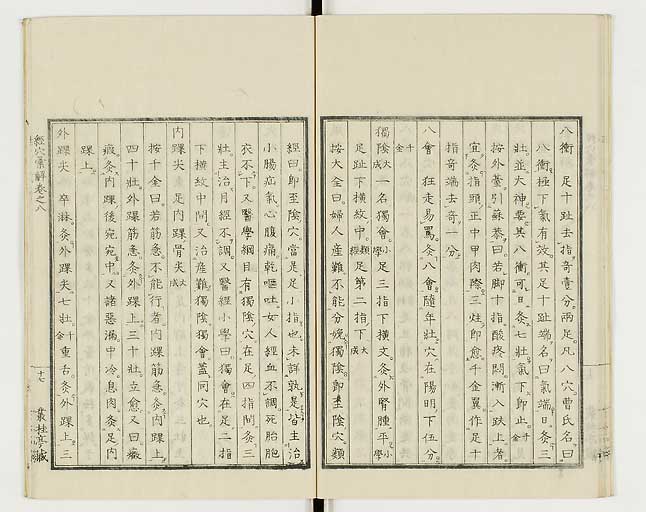 八衝 足十趾去指奇壹分兩足凡八穴曹氏名曰
八衝極下氣有效其足十趾端名曰氣端日灸三
壯並大神要其八衝可日灸七壯氣下即止千金
按外臺引蘇恭曰若脚十指酸疼悶漸入趺上者
宜灸指頭正中甲肉際三炷即愈千金翼作足十
指奇端去奇一分
八會 狂走易罵灸八會隨年壯穴在陽明下五分
千金
獨陰大成一名獨會小學足三指下橫文灸外腎腫平小學
足趾下橫紋中類經足第二指下大成
按大全曰婦人産難不能分娩獨陰即至陰穴類
經曰即至陰穴當是足小指也未詳孰是皆主治
小腸疝氣心腹痛乾嘔吐女人經血不調死胎胞
衣不下又醫學綱目有獨陰穴在足四指間灸三
壯主治月經不調又醫經小學曰獨會在足二指
下横紋中間又治産難獨陰獨會蓋同穴也
内踝尖 足内踝骨尖大成
按千金曰若筋急不能行者内踝筋急灸内踝上
四十壯外踝筋急灸外踝上三十壯立愈又曰癥
瘕灸内踝後宛宛中又諸惡漏中冷息肉灸足内
踝上
外踝尖 卒淋灸外踝尖七壯千金重舌灸外踝上三
經穴彙解卷之八
十七
叢桂亭藏